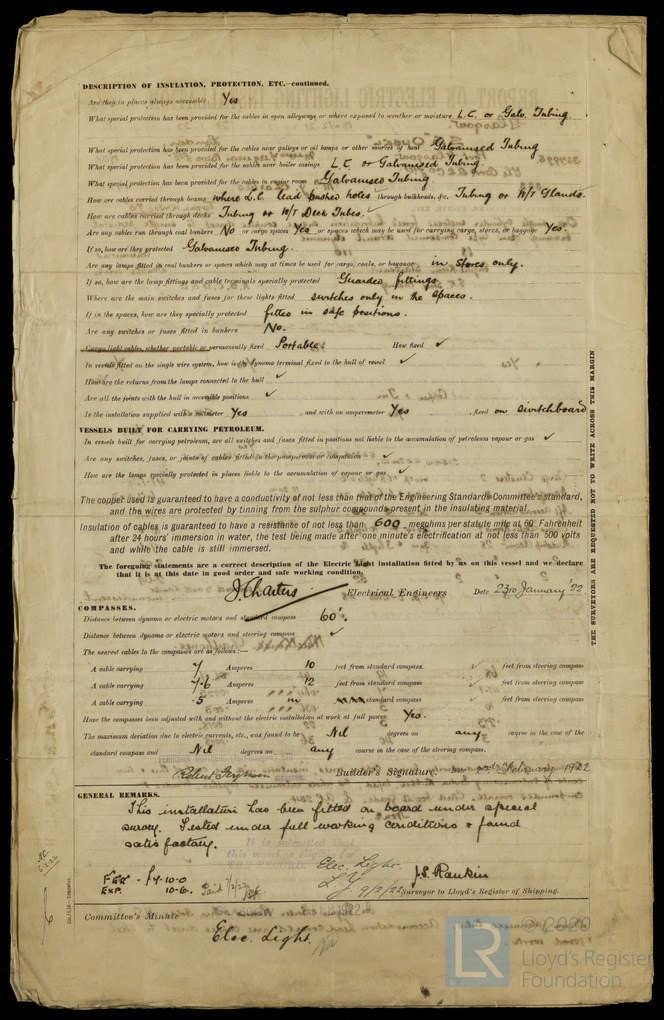 DESCRIPTION OF INSULATION, PROTECTION, ETC.—continued.
Are they in places always accessible Yes
What special protection has been provided for the cables in open alleyways or where exposed to weather or moisture L.C. or Galv. Tubing
What special protection has been provided for the cables near galleys or oil lamps or other sources of heat Galvanised Tubing
What special protection has been provided for the cables near boiler casings L.C. or Galvanised Tubing
What special protection has been provided for the cables in engine room Galvanised Tubing
How are cables carried through beams where L.C. lead bushed holes through bulkheads, &c. Tubing or W/T Glands.
How are cables carried through decks Tubing or W/T Deck Tubes.
Are any cables run through coal bunkers No or cargo spaces Yes or spaces which may be used for carrying cargo, stores, or baggage Yes.
If so, how are they protected Galvanised Tubing.
Are any lamps fitted in coal bunkers or spaces which may at times be used for cargo, coals, or baggage in stores only.
If so, how are the lamp fittings and cable terminals specially protected Guarded fittings
Where are the main switches and fuses for these lights fitted switches only in the spaces.
If in the spaces, how are they specially protected fitted in safe positions.
Are any switches or fuses fitted in bunkers No.
Cargo light cables, whether portable or permanently fixed Portable. How fixed ✓
In vessels fitted on the single wire system, how is the dynamo terminal fixed to the hull of vessel ✓
How are the returns from the lamps connected to the hull ✓
Are all the joints with the hull in accessible positions ✓
Is the installation supplied with a voltmeter Yes , and with an amperemeter Yes , fixed on switchboard
VESSELS BUILT FOR CARRYING PETROLEUM.
In vessels built for carrying petroleum, are all switches and fuses fitted in positions not liable to the accumulation of petroleum vapour or gas ✓
Are any switches, fuses, or joints of cables fitted in the pump room or companion ✓
How are the lamps specially protected in places liable to the accumulation of vapour or gas ✓
The copper used is guaranteed to have a conductivity of not less than that of the Engineering Standards Committee's standard,
and the wires are protected by tinning from the sulphur compounds present in the insulating material.
Insulation of cables is guaranteed to have a resistance of not less than 600 megohms per statute mile at 60° Fahrenheit
after 24 hours' immersion in water, the test being made after one minute's electrification at not less than 500 volts
and while the cable is still immersed.
The foregoing statements are a correct description of the Electric Light installation fitted by us on this vessel and we declare
that it is at this date in good order and safe working condition.
J. Charters Electrical Engineers Date 23rd January '22
COMPASSES.
Distance between dynamo or electric motors and standard compass 60'.
Distance between dynamo or electric motors and steering compass ✓
The nearest cables to the compasses are as follows:—
A cable carrying 7 Amperes 10 feet from standard compass ✓ feet from steering compass
A cable carrying 7.6 Amperes 12 feet from standard compass ✓ feet from steering compass
A cable carrying .5 Amperes in standard compass ✓ feet from steering compass
Have the compasses been adjusted with and without the electric installation at work at full power Yes.
The maximum deviation due to electric currents, etc., was found to be Nil degrees on any course in the case of the
standard compass and Nil degrees on any course in the case of the steering compass.
Robert Ferguson Builder's Signature. Date February 1922
GENERAL REMARKS.
This installation has been fitted on board under special
survey. Tested under full working conditions & found
satisfactory.
It is submitted that
Elec. Light.
FEE - £4-10-0
EXP. 10-6. Paid 7/2/22
9/2/22
J.S. Rankin
Surveyor to Lloyd's Register of Shipping.
Committee's Minute
Elec. Light.
THE SURVEYORS ARE REQUESTED NOT TO WRITE ACROSS THIS MARGIN
© 2020
LR
Lloyd's Register
Foundation